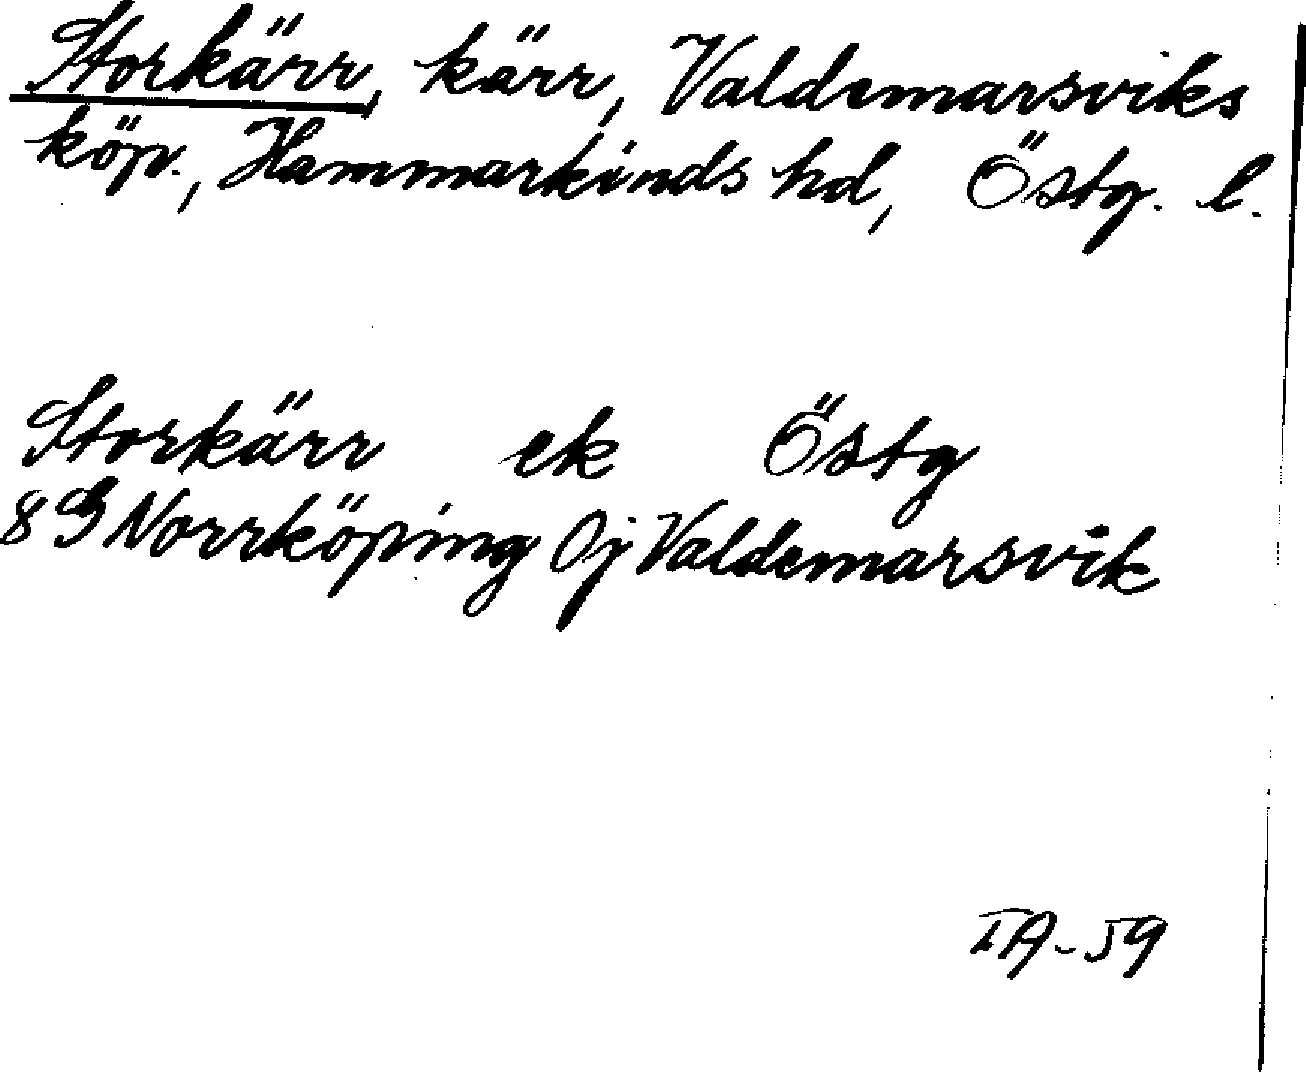 Storkärr, kärr, Valdemarsviks
köp., Hammarkinds hd, Östg. l.
Storkärr ek Östg
8G Norrköping Oj Valdemarsvik
IA-59